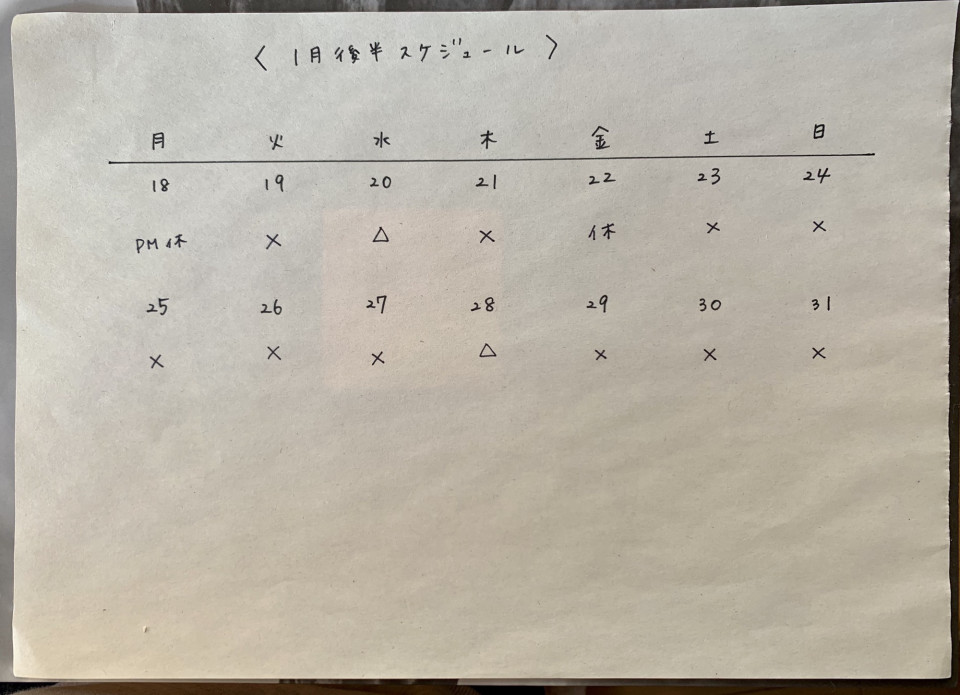 〈 1月後半スケジュール 〉
月 火 水 木 金 土 日
18 19 20 21 22 23 24
PM休 × △ × 休 × ×
25 26 27 28 29 30 31
× × × △ × × ×